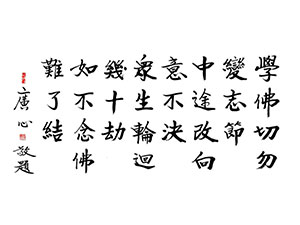 學佛切勿
變志節
中途改向
意不決
衆生輪迴
幾十劫
如不念佛
難了結
廣心敬題